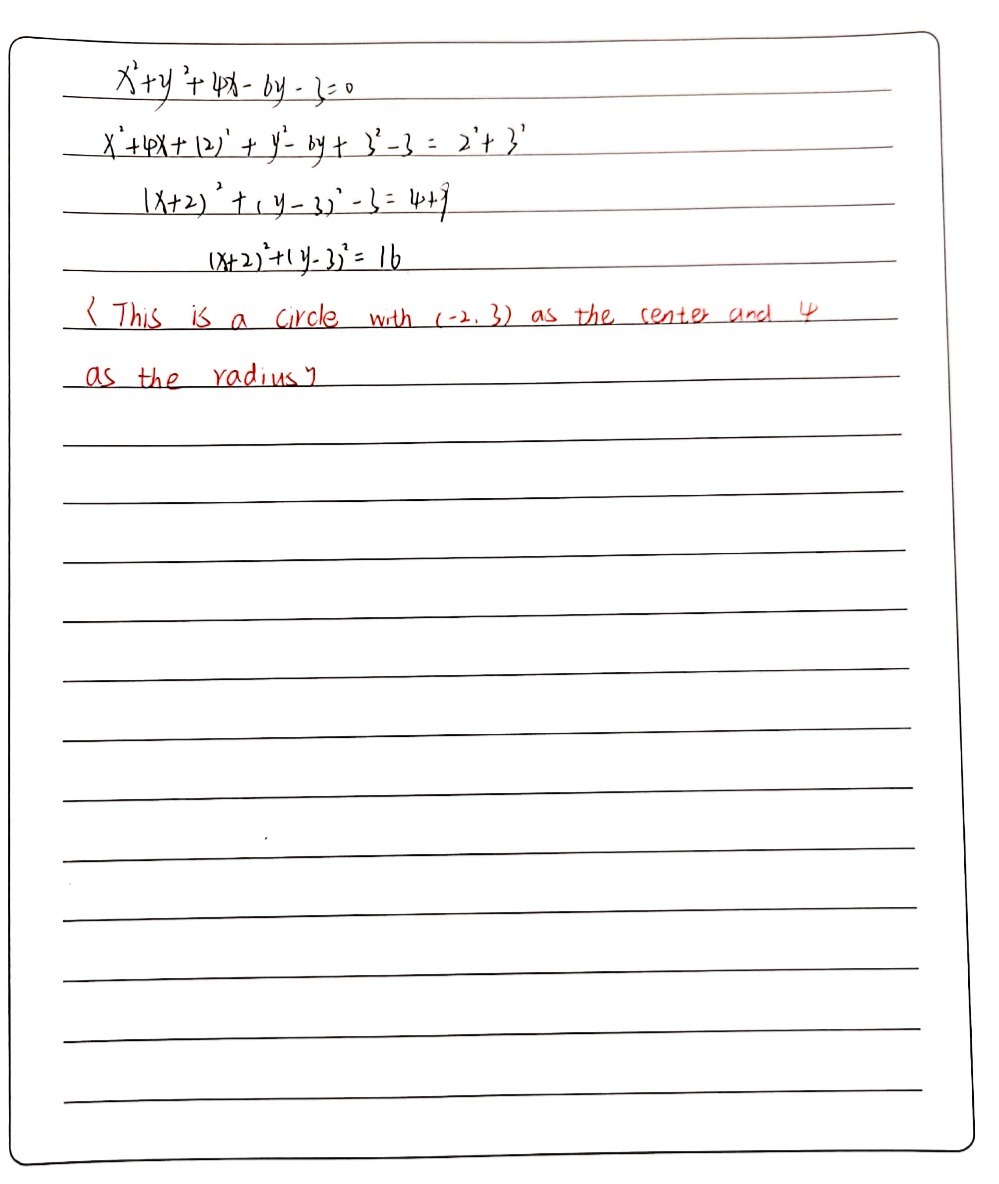 x²+y²+4x-6y-3=0
x²+4x+(2)²+y²-6y+3²-3=2²+3²
(x+2)²+(y-3)²-3=4+9
(x+2)²+(y-3)²=16
{ This is a circle with (-2.3) as the center and 4
as the radius}